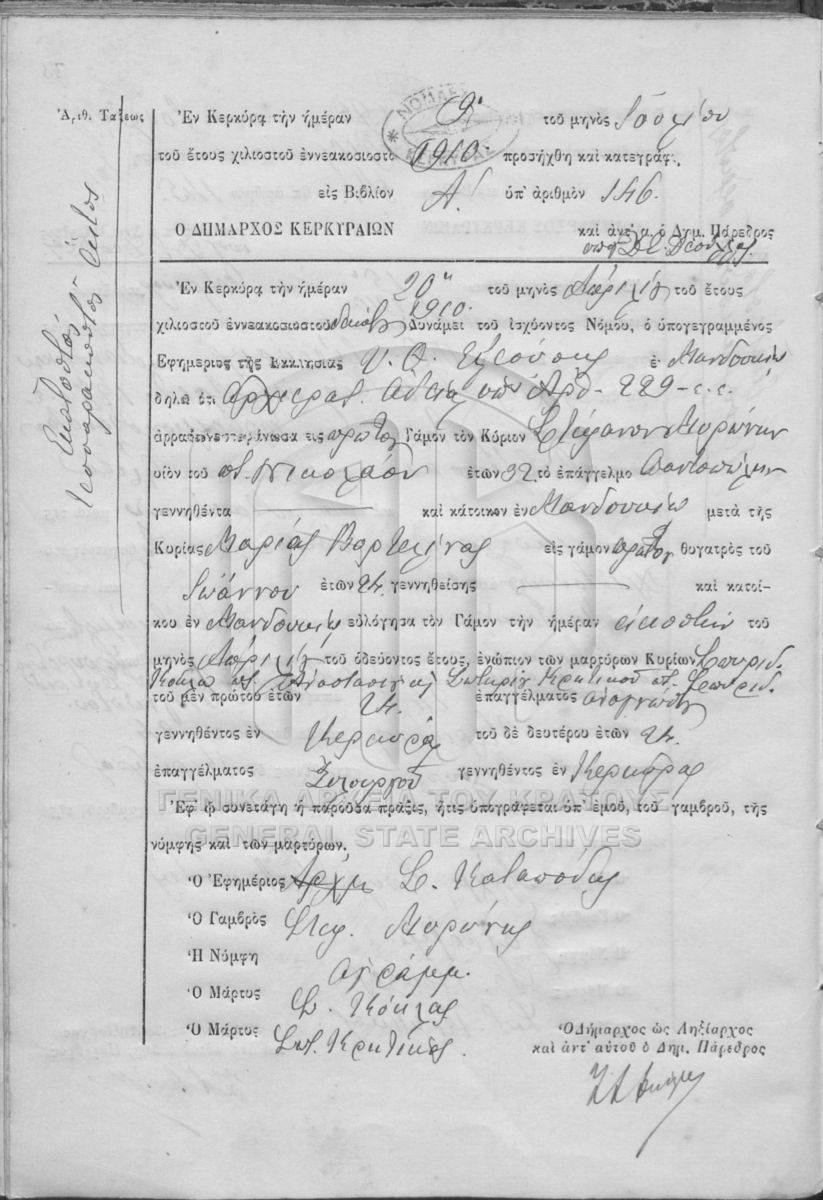 Ἀριθ. Τάξεως
Ἑκατοστός
Τεσσαρακοστός Ἕκτος
Ἐν Κερκύρᾳ τὴν ἡμέραν 9 τοῦ μηνὸς Ἰουλίου
τοῦ ἔτους χιλιοστοῦ ἐννεακοσιοστο 1910 προσήχθη καὶ κατεγράφ.
εἰς Βιβλίον Α. ὑπ' ἀριθμὸν 146.
Ο ΔΗΜΑΡΧΟΣ ΚΕΡΚΥΡΑΙΩΝ καὶ ἀντ' α. ὁ Δημ. Πάρεδρος
Ἐν Κερκύρᾳ τὴν ἡμέραν 20 τοῦ μηνὸς Ἀπριλίου τοῦ ἔτους
1910.
χιλιοστοῦ ἐννεακοσιοστοῦ δεκάτου Δυνάμει τοῦ ἰσχύοντος Νόμου, ὁ ὑπογεγραμμένος
Ἐφημέριος τῆς Ἐκκλησίας Υ. Θ. ἐ Μανδουκίῳ
δηλῶ ὅτι Ἀρχιερατ. Ἀδείᾳ ὑπ' Ἀρθ. 229
ἀρραβώνεστεφάνωσα εἰς πρῶτον Γάμον τὸν Κύριον Στέφανον
υἱὸν τοῦ ποτ. Νικολάου ἐτῶν 32 τὸ ἐπάγγελμα Παντοπώλην
γεννηθέντα καὶ κάτοικον ἐν Μανδουκίῳ μετὰ τῆς
Κυρίας Μαρίας Βορτελίνας εἰς γάμον πρῶτον θυγατρὸς τοῦ
Ἰωάννου ἐτῶν 24 γεννηθείσης καὶ κατοί-
κου ἐν Μανδουκίῳ εὐλόγησα τὸν Γάμον τὴν ἡμέραν εἰκοστὴν τοῦ
μηνὸς Ἀπριλίου τοῦ ὁδεύοντος ἔτους, ἐνώπιον τῶν μαρτύρων Κυρίων Σπυρίδ.
Κόκλα ποτ. Ἀναστασίου κ Σωτηρίου Κρητικοῦ ποτ. Σπυρίδ.
τοῦ μὲν πρώτου ἐτῶν 24. ἐπαγγέλματος
γεννηθέντος ἐν Κερκύρᾳ τοῦ δὲ δευτέρου ἐτῶν 24.
ἐπαγγέλματος Ξυλουργοῦ γεννηθέντος ἐν Κερκύρᾳ
Ἐφ' ᾧ συνετάγη ἡ παροῦσα πρᾶξις, ἥτις ὑπογράφεται ὑπ' ἐμοῦ, τοῦ γαμβροῦ, τῆς
νύμφης καὶ τῶν μαρτύρων.
Ὁ Ἐφημέριος Σ. Καταπόδης
Ὁ Γαμβρὸς Στεφ.
Ἡ Νύμφη ἀγράμμ.
Ὁ Μάρτυς Σ. Κόκλας
Ὁ Μάρτυς Σωτ. Κρητικός.
Ὁ Δήμαρχος ὡς Ληξίαρχος
καὶ ἀντ' αὐτοῦ ὁ Δημ. Πάρεδρος
ΓΕΝΙΚΑ ΑΡΧΕΙΑ ΤΟΥ ΚΡΑΤΟΥΣ
GENERAL STATE ARCHIVES